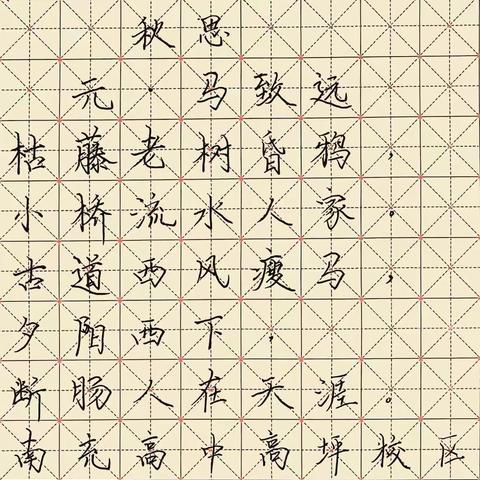 秋思
元·马致远
枯藤老树昏鸦，
小桥流水人家。
古道西风瘦马，
夕阳西下，
断肠人在天涯。
南充高中高坪校区